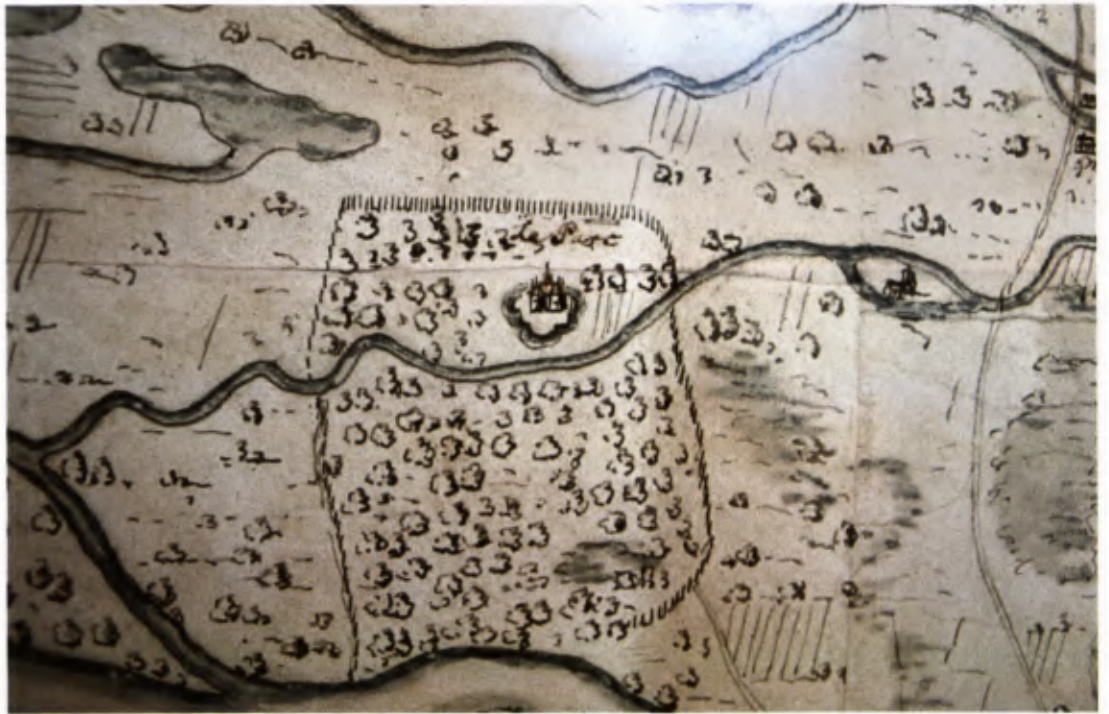 le Parc